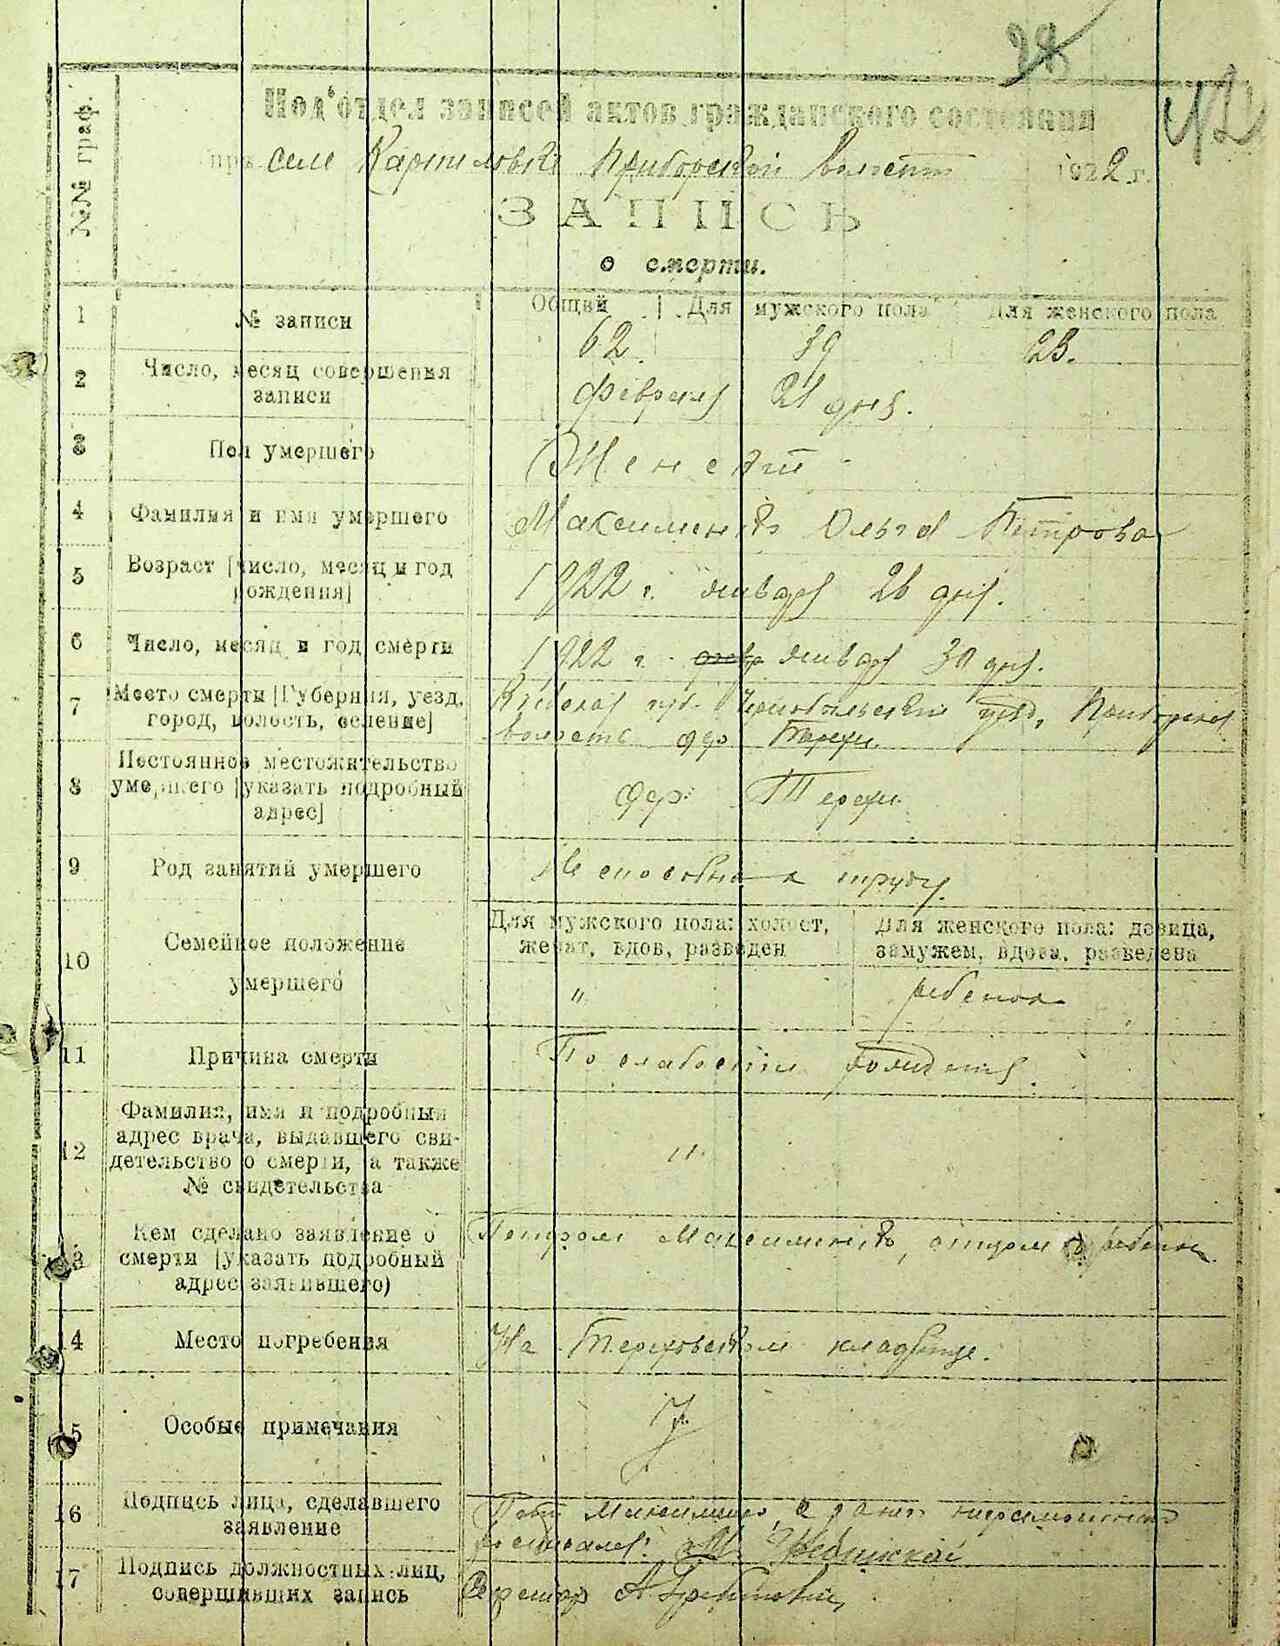 28
№№ граф.
Под'отдел записей актов гражданского состояния
при селе Карпиловке Приборской волости 1922 г.
ЗАПИСЬ
о смерти.
1 № записи Общий Для мужского пола Для женского пола
62. 39 23.
2 Число, месяц совершения записи
февраля 21 дня.
3 Пол умершего
Женский
4 Фамилия и имя умершего
Максименко Ольга Петрова
5 Возраст [число, месяц и год рождения]
1922 г. января 26 дня.
6 Число, месяц и год смерти
1922 г. января 30 дня.
7 Место смерти [Губерния, уезд, город, волость, селение]
Киевская губ. Чернобыльский уезд, Приборская
волость дер Терехи
8 Постоянное местожительство умершего [указать подробный адрес]
дер. Терехи
9 Род занятий умершего
Не способна к труду.
10 Семейное положение умершего
Для мужского пола: холост, женат, вдов, разведен
Для женского пола: девица, замужем, вдова, разведена
" ребенок
11 Причина смерти
По слабости
12 Фамилия, имя и подробный адрес врача, выдавшего свидетельство о смерти, а также № свидетельства
"
13 Кем сделано заявление о смерти [указать подробный адрес заявившего)
Петром Максименко, отцом ребенка
14 Место погребения
На Тереховском кладбище.
15 Особые примечания
16 Подпись лица, сделавшего заявление
Петр Максименко, а за него неграмотного
17 Подпись должностных лиц, совершивших запись